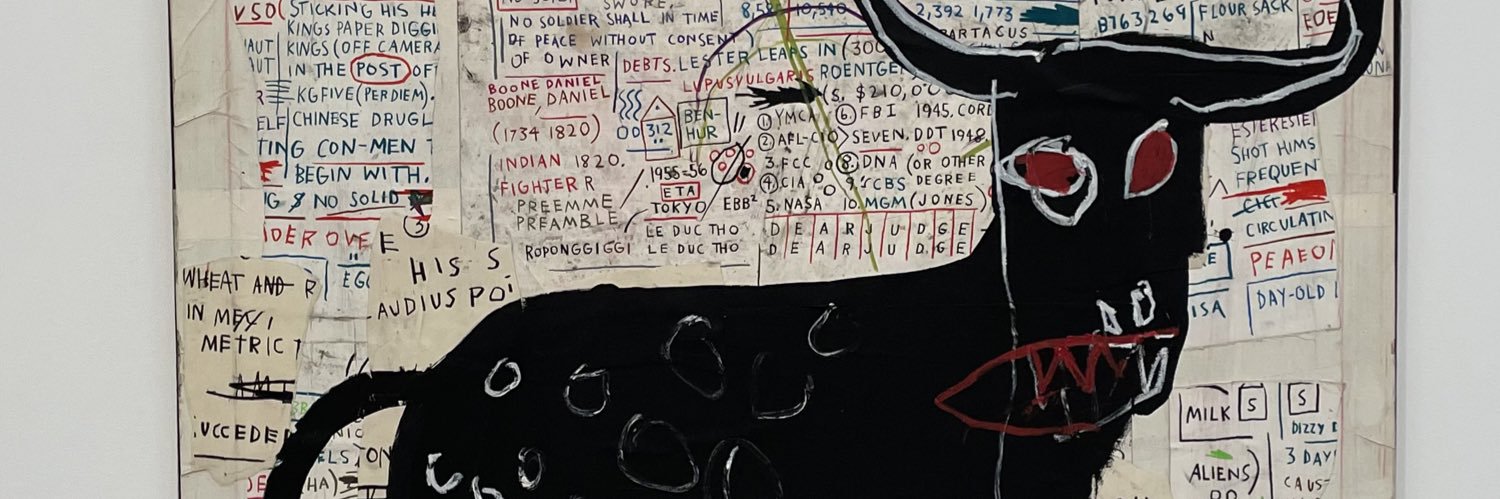 VSO
STICKING HIS
KINGS PAPER DIGGI
KINGS (OFF CAMERA
IN THE POST OF
KGFIVE (PERDIEM).
CHINESE DRUGL
TING CON-MEN
BEGIN WITH.
NO SOLID
3
DER OVE
E
HIS S.
AUDIUS PO
WHEAT AND R
IN MEX
METRIC
UCCEDE
NO SOLDIER SHALL IN TIME
OF PEACE WITHOUT CONSENT
OF OWNER
DEBTS. LESTER LEAPS IN (300
LUPUSVULGARIS ROENTGE
BOONE DANIEL
BOONE, DANIEL
(1734 1820)
INDIAN 1820.
FIGHTER R
PREEMME
PREAMBLE
ROPONGGIGGI
312
BEN-
HUR
1955-56
ETA
TOKYO
EBB²
LE DUC THO
LE DUC THO
10,540
2,392 1,773
PARTACUS
(S, $210,0
① YMCA
② AFL-CIO
3. FCC
④ CIA
5. NASA
⑥ FBI 1945, CORD
SEVEN, DDT 1948
⑧ DNA (OR OTHER
9. CBS DEGREE
10. MGM (JONES)
D E A R J U D G E
D E A R J U D G E
8763,269
FLOUR SACK
N
SHOT HIMS
FREQUEN
CIRCULATIN
PEAEOI
ISA
DAY-OLD
MILK S
S
DIZZY
ALIENS)
3 DAY
CAUS